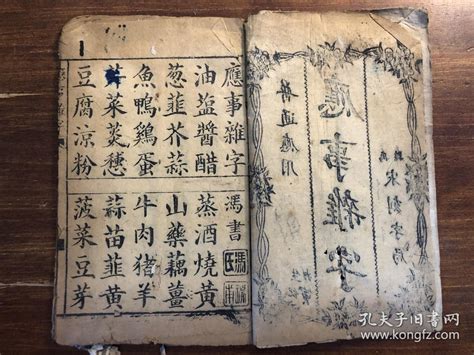 宋刻字局
應事雜字
普通應用
應事雜字 馮書
油盐醬醋 蒸酒燒黄
葱韭芥蒜 山藥藕薑
魚鴨鷄蛋 牛肉猪羊
菜茭 蒜苗韭黄
豆腐凉粉 菠菜豆芽
孔夫子旧书网
kongfz.com